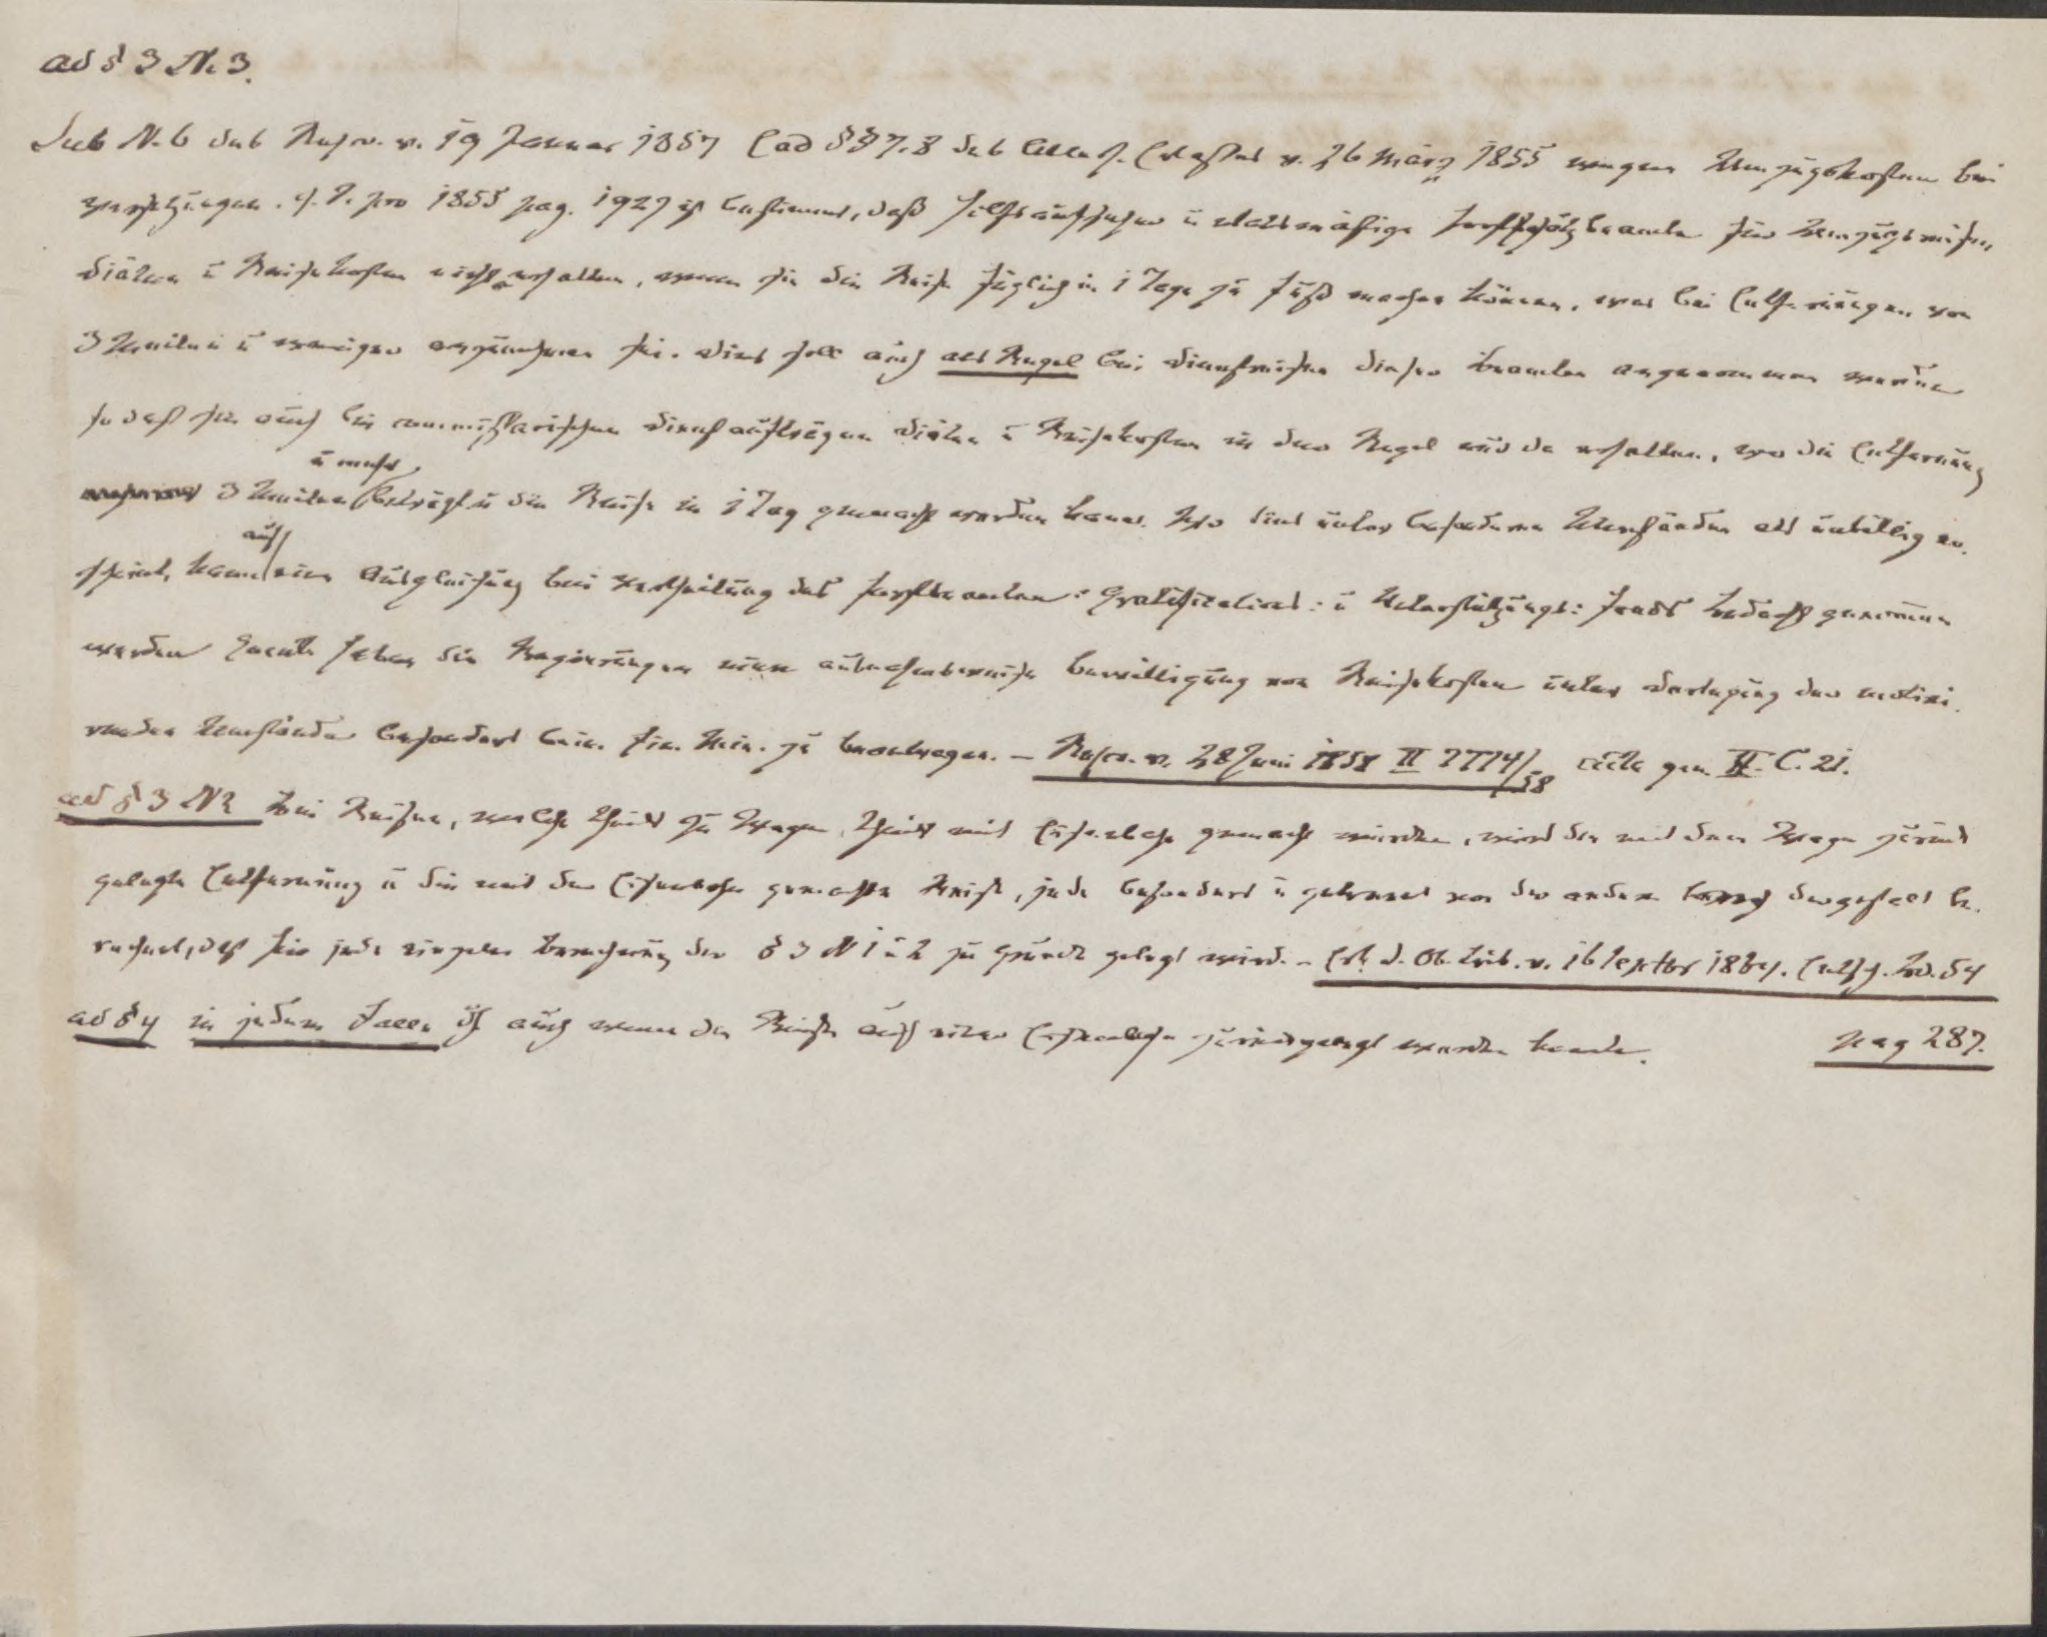 ad § 3 N. 3.
Sub N. 6 des Rescr. v. 19 Januar 1857 (ad §§ 7. 8 des Allerh. Erlasses v. 26 März 1855 wegen Umzugskosten bei
Versetzungen. cf. pro 1855 pag. 1927 ist bestimmt, daß Hilfsaufseher u etatsmäßige Forstschutzbeamte für Umzugsreisen,
Diäten u Reisekosten nicht erhalten, wenn sie die Reise füglich in 1 Tage zu Fuß machen können, was bei Entfernungen von
3 Meilen u weniger anzunehmen sei. Dies soll auch als Regel bei Dienstreisen dieser Beamten angenommen werden
so daß sie auch bei commissarischen Dienstaufträgen Diäten u Reisekosten in der Regel nur da erhalten, wo die Entfernung
3 Meilen u mehr beträgt u die Reise in 1 Tag gemacht werden kann. Wo dies unter besonderen Umständen als unbillig er-
scheint, kann auf eine Ausgleichung bei Vertheilung des Forstbeamten: Gratifications: u Unterstützungs: Fonds Bedacht genommen
werden haben die Regierungen eine ausnahmsweise Bewilligung von Reisekosten unter Darlegung der motivi-
renden Umstände besonders beim Fin. Min. zu beantragen. – Rescr. v. 28 Juni 1858 II 7774/58 acta gen. II. C. 21.
ad § 3 N 2 Bei Reisen, welche theils zu Wagen, theils mit Eisenbahn gemacht wurden, wird die mit dem Wagen zurück
gelegte Entfernung u die mit der Eisenbahn gemachte Reise, jede besonders u getrennt von der andern dergestalt be-
rechnet, daß für jede einzelne Berechnung der § 3 N 1 u 2 zu Grunde gelegt wird. – Erk. d. Ob. Trib. v. 16 Septbr 1864. Entsch. Bd. 54
ad § 4 in jedem Falle auch wenn die Reise auf einer Eisenbahn zurückgelegt werden konnte. pag 287.